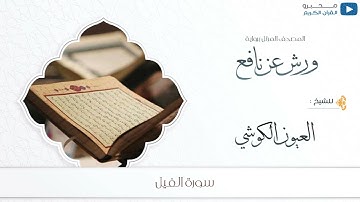 محبرو
القرآن الكريم
المصحف المرتل برواية
ورش عن نافع
للشيخ :
العيون الكوشي
سورة الفيل